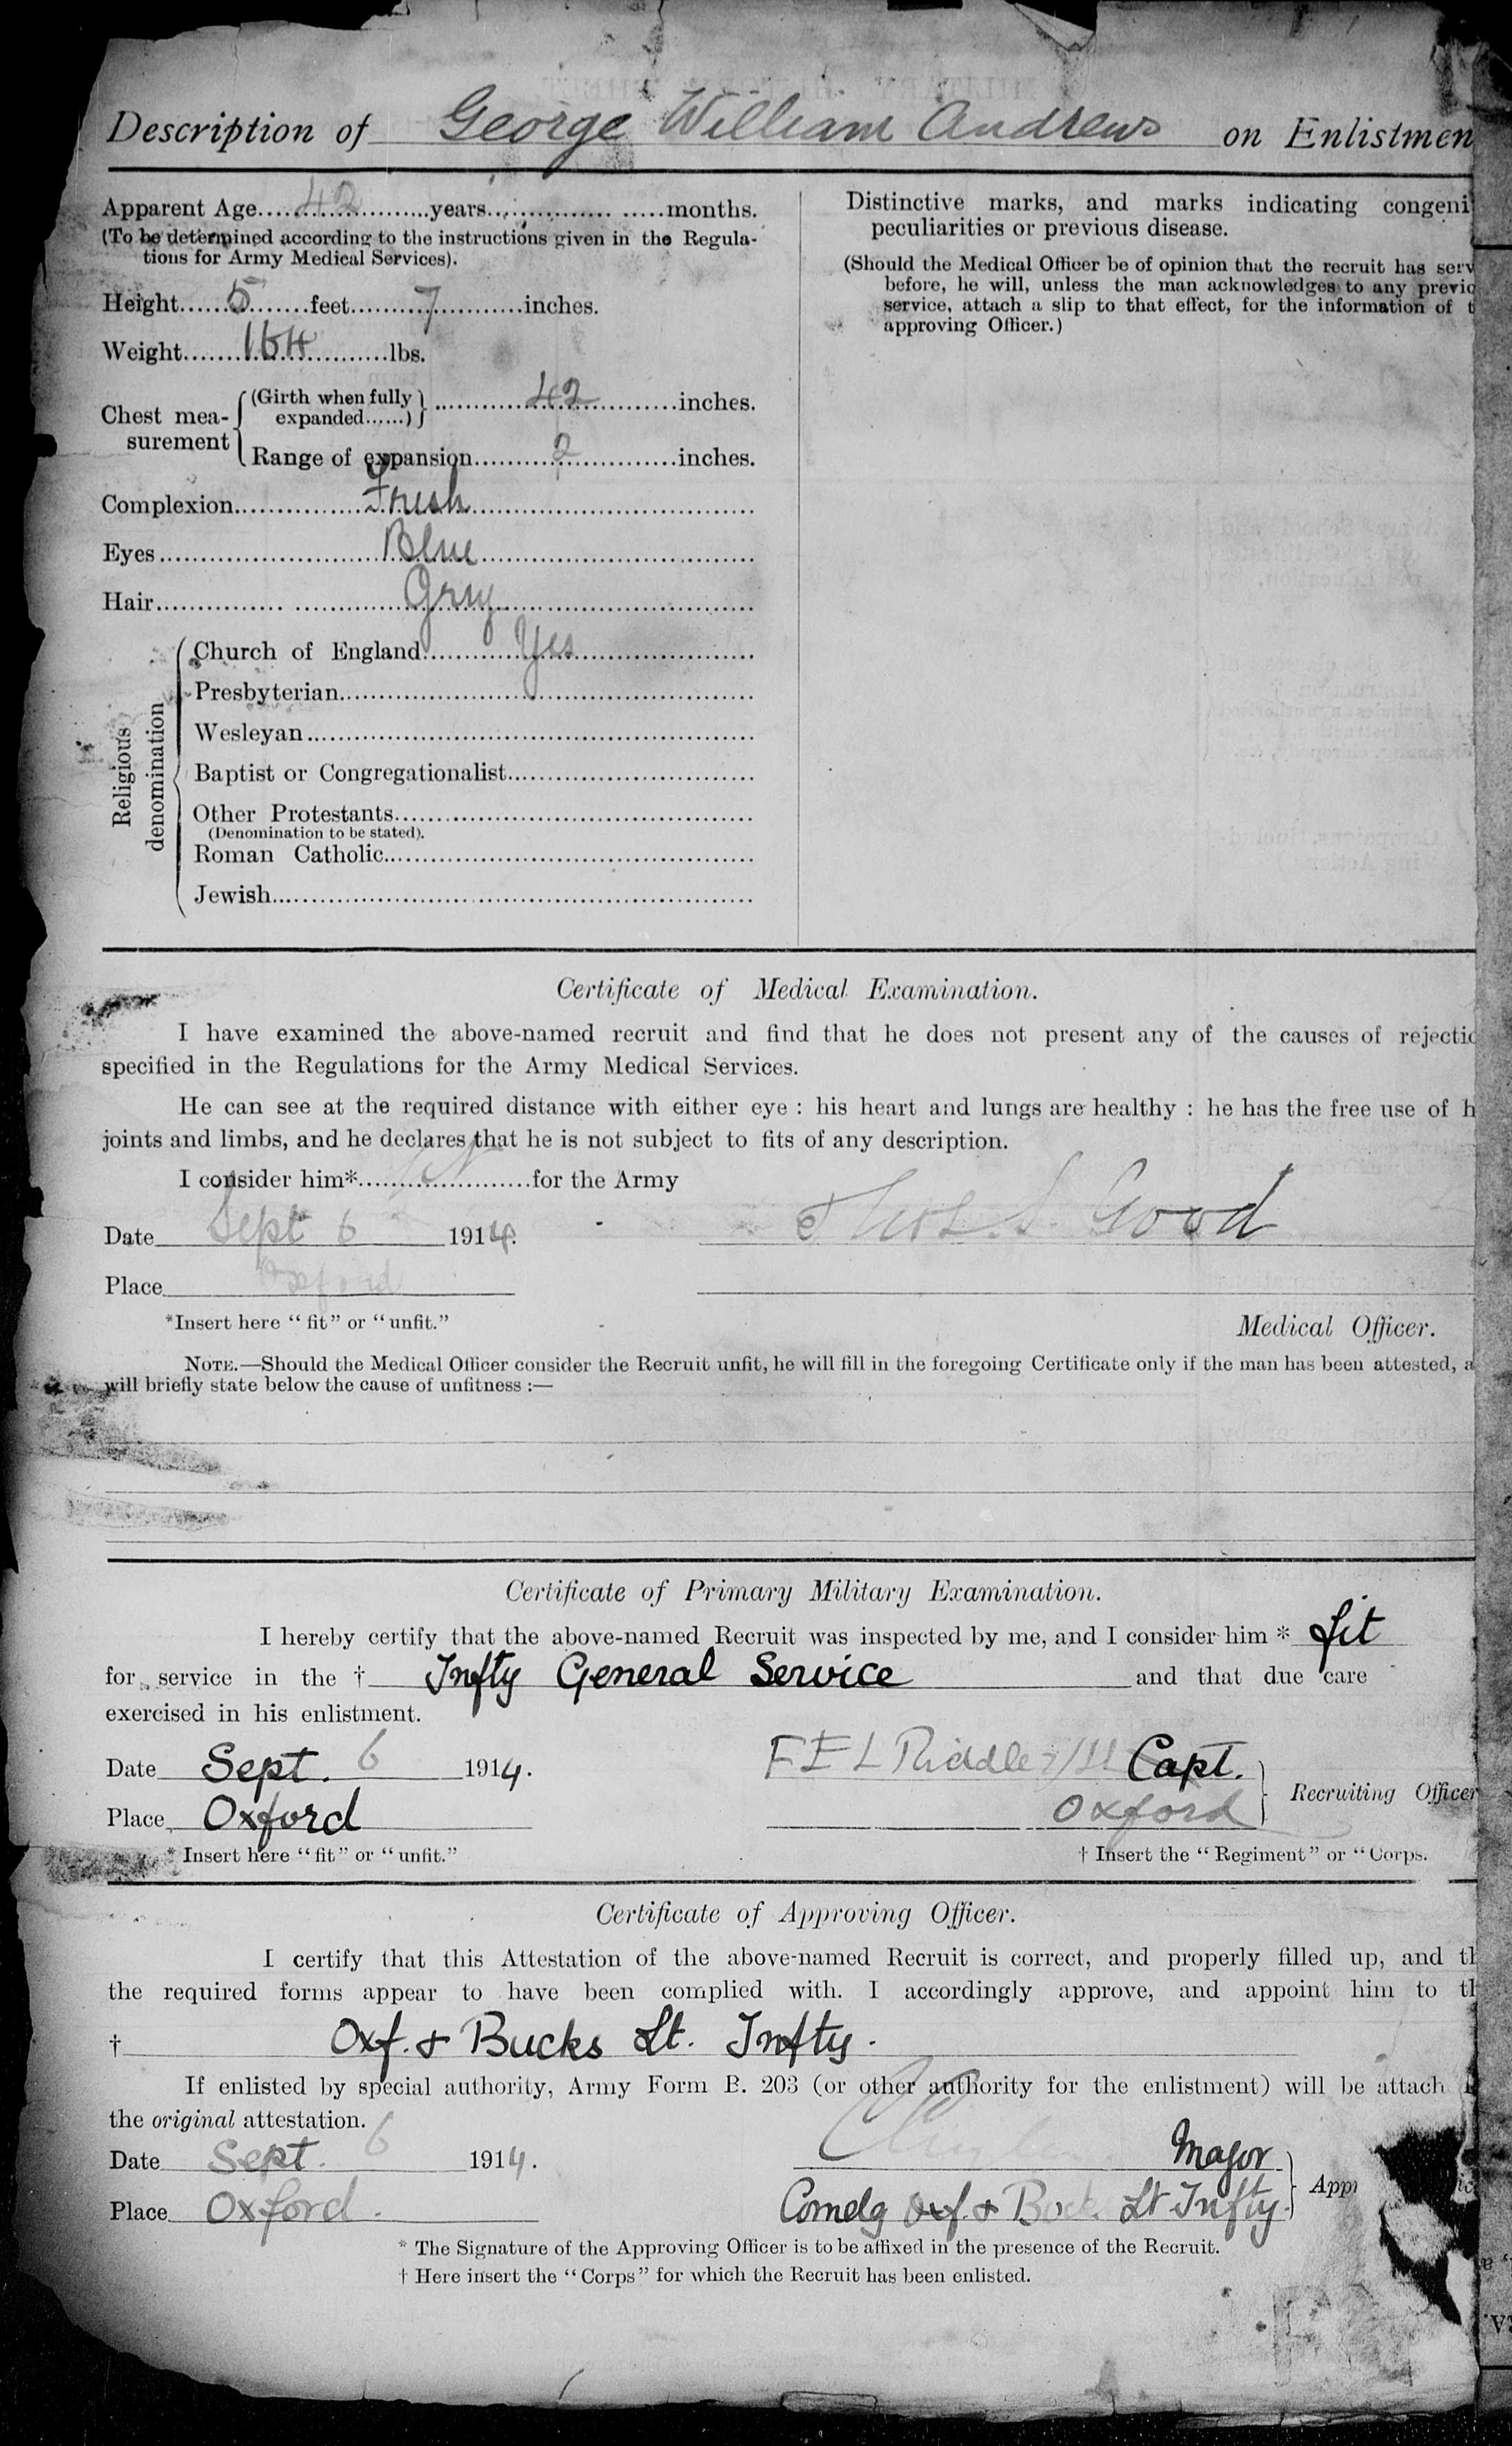 Description of George William Andrews on Enlistmen
Apparent Age 42 years months.
(To be determined according to the instructions given in the Regula-
tions for Army Medical Services).
Height 5 feet 7 inches.
Weight 164 lbs.
Chest mea-
surement
(Girth when fully
expanded......) 42 inches.
Range of expansion 2 inches.
Complexion Fresh
Eyes Blue
Hair Grey
Religious
denomination
Church of England Yes
Presbyterian
Wesleyan
Baptist or Congregationalist
Other Protestants
(Denomination to be stated).
Roman Catholic
Jewish
Distinctive marks, and marks indicating congeni
peculiarities or previous disease.
(Should the Medical Officer be of opinion that the recruit has serv
before, he will, unless the man acknowledges to any previo
service, attach a slip to that effect, for the information of t
approving Officer.)
Certificate of Medical Examination.
I have examined the above-named recruit and find that he does not present any of the causes of rejectio
specified in the Regulations for the Army Medical Services.
He can see at the required distance with either eye : his heart and lungs are healthy : he has the free use of h
joints and limbs, and he declares that he is not subject to fits of any description.
I consider him* fit for the Army
Date Sept 6 1914.
Thos. S. Good
Place Oxford
*Insert here "fit" or "unfit."
Medical Officer.
NOTE.—Should the Medical Officer consider the Recruit unfit, he will fill in the foregoing Certificate only if the man has been attested, a
will briefly state below the cause of unfitness :—
Certificate of Primary Military Examination.
I hereby certify that the above-named Recruit was inspected by me, and I consider him * fit
for service in the † Infty General Service and that due care
exercised in his enlistment.
Date Sept. 6 1914.
F E L Riddle Capt.
Place Oxford
Oxford
Recruiting Officer
* Insert here "fit" or "unfit."
† Insert the "Regiment" or "Corps.
Certificate of Approving Officer.
I certify that this Attestation of the above-named Recruit is correct, and properly filled up, and th
the required forms appear to have been complied with. I accordingly approve, and appoint him to th
† Oxf. & Bucks Lt. Infty.
If enlisted by special authority, Army Form B. 203 (or other authority for the enlistment) will be attach
the original attestation.
Date Sept. 6 1914.
Major
Place Oxford.
Comdg Oxf. & Buck Lt Infty.
App
* The Signature of the Approving Officer is to be affixed in the presence of the Recruit.
† Here insert the "Corps" for which the Recruit has been enlisted.